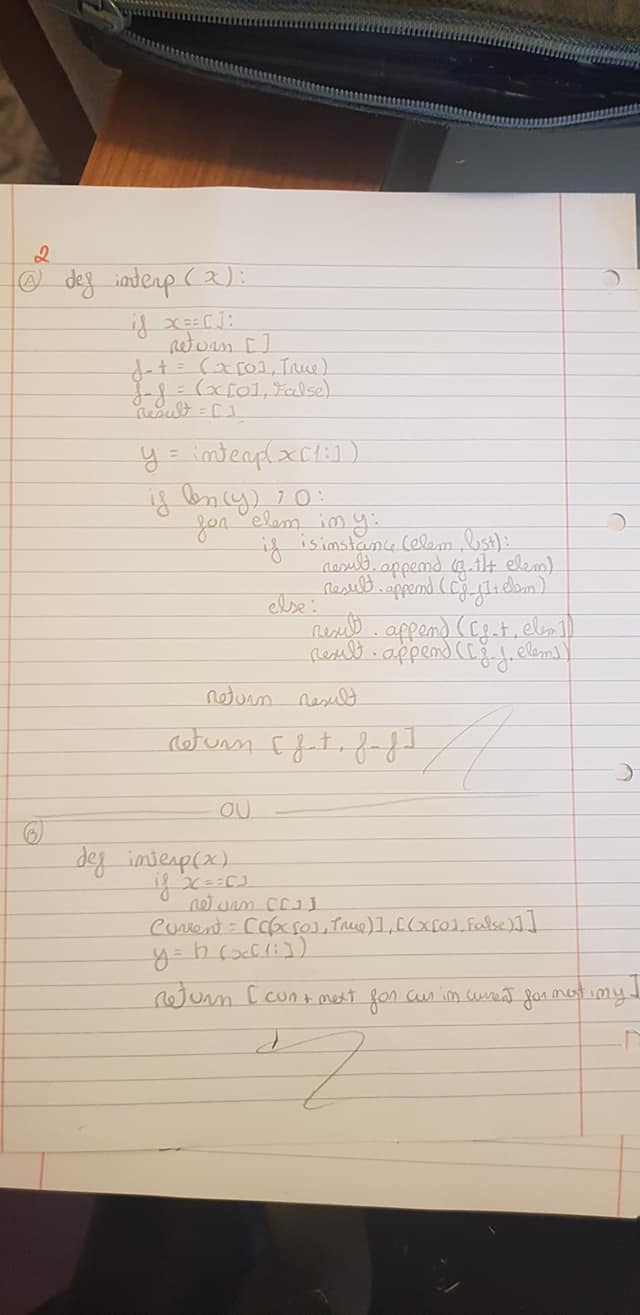 2
(A) def interp(x):
if x==[]:
return []
f-t = (x[0], True)
f-f = (x[0], False)
result = []
y = interp(x[1:])
if len(y) > 0:
for elem in y:
if isinstance(elem, list):
result.append([f-t]+ elem)
result.append([f-f]+elem)
else:
result.append([f-t, elem])
result.append([f-f, elem])
return result
return [f-t, f-f]
OU
(B)
def interp(x)
if x==[]
return [[]]
Current = [[(x[0], True)], [(x[0], False)]]
y = h(x[1:])
return [cur + next for cur in current for next in y]